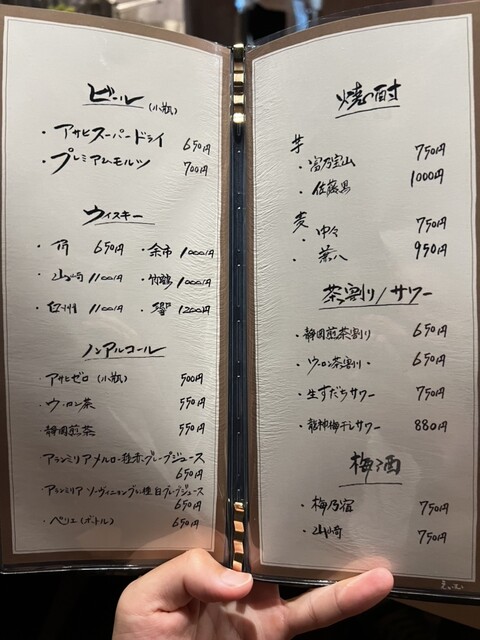 ビール(小瓶)
・アサヒスーパードライ 650円
・プレミアムモルツ 700円
ウィスキー
・角 650円 ・余市 1000円
・山崎 1100円 ・竹鶴 1000円
・白州 1100円 ・響 1200円
ノンアルコール
・アサヒゼロ(小瓶) 500円
・ウーロン茶 550円
・静岡煎茶 550円
・アランミリア メルロー種赤グレープジュース
650円
・アランミリア ソーヴィニヨンブラン種白グレープジュース
650円
・ペリエ(ボトル) 650円
焼酎
芋
・富乃宝山 750円
・佐藤黒 1000円
麦
・中々 750円
・兼八 950円
茶割り/サワー
・静岡煎茶割り 650円
・ウーロン茶割り 650円
・生すだちサワー 750円
・龍神梅干しサワー 880円
梅酒
・梅乃宿 750円
・山崎 750円